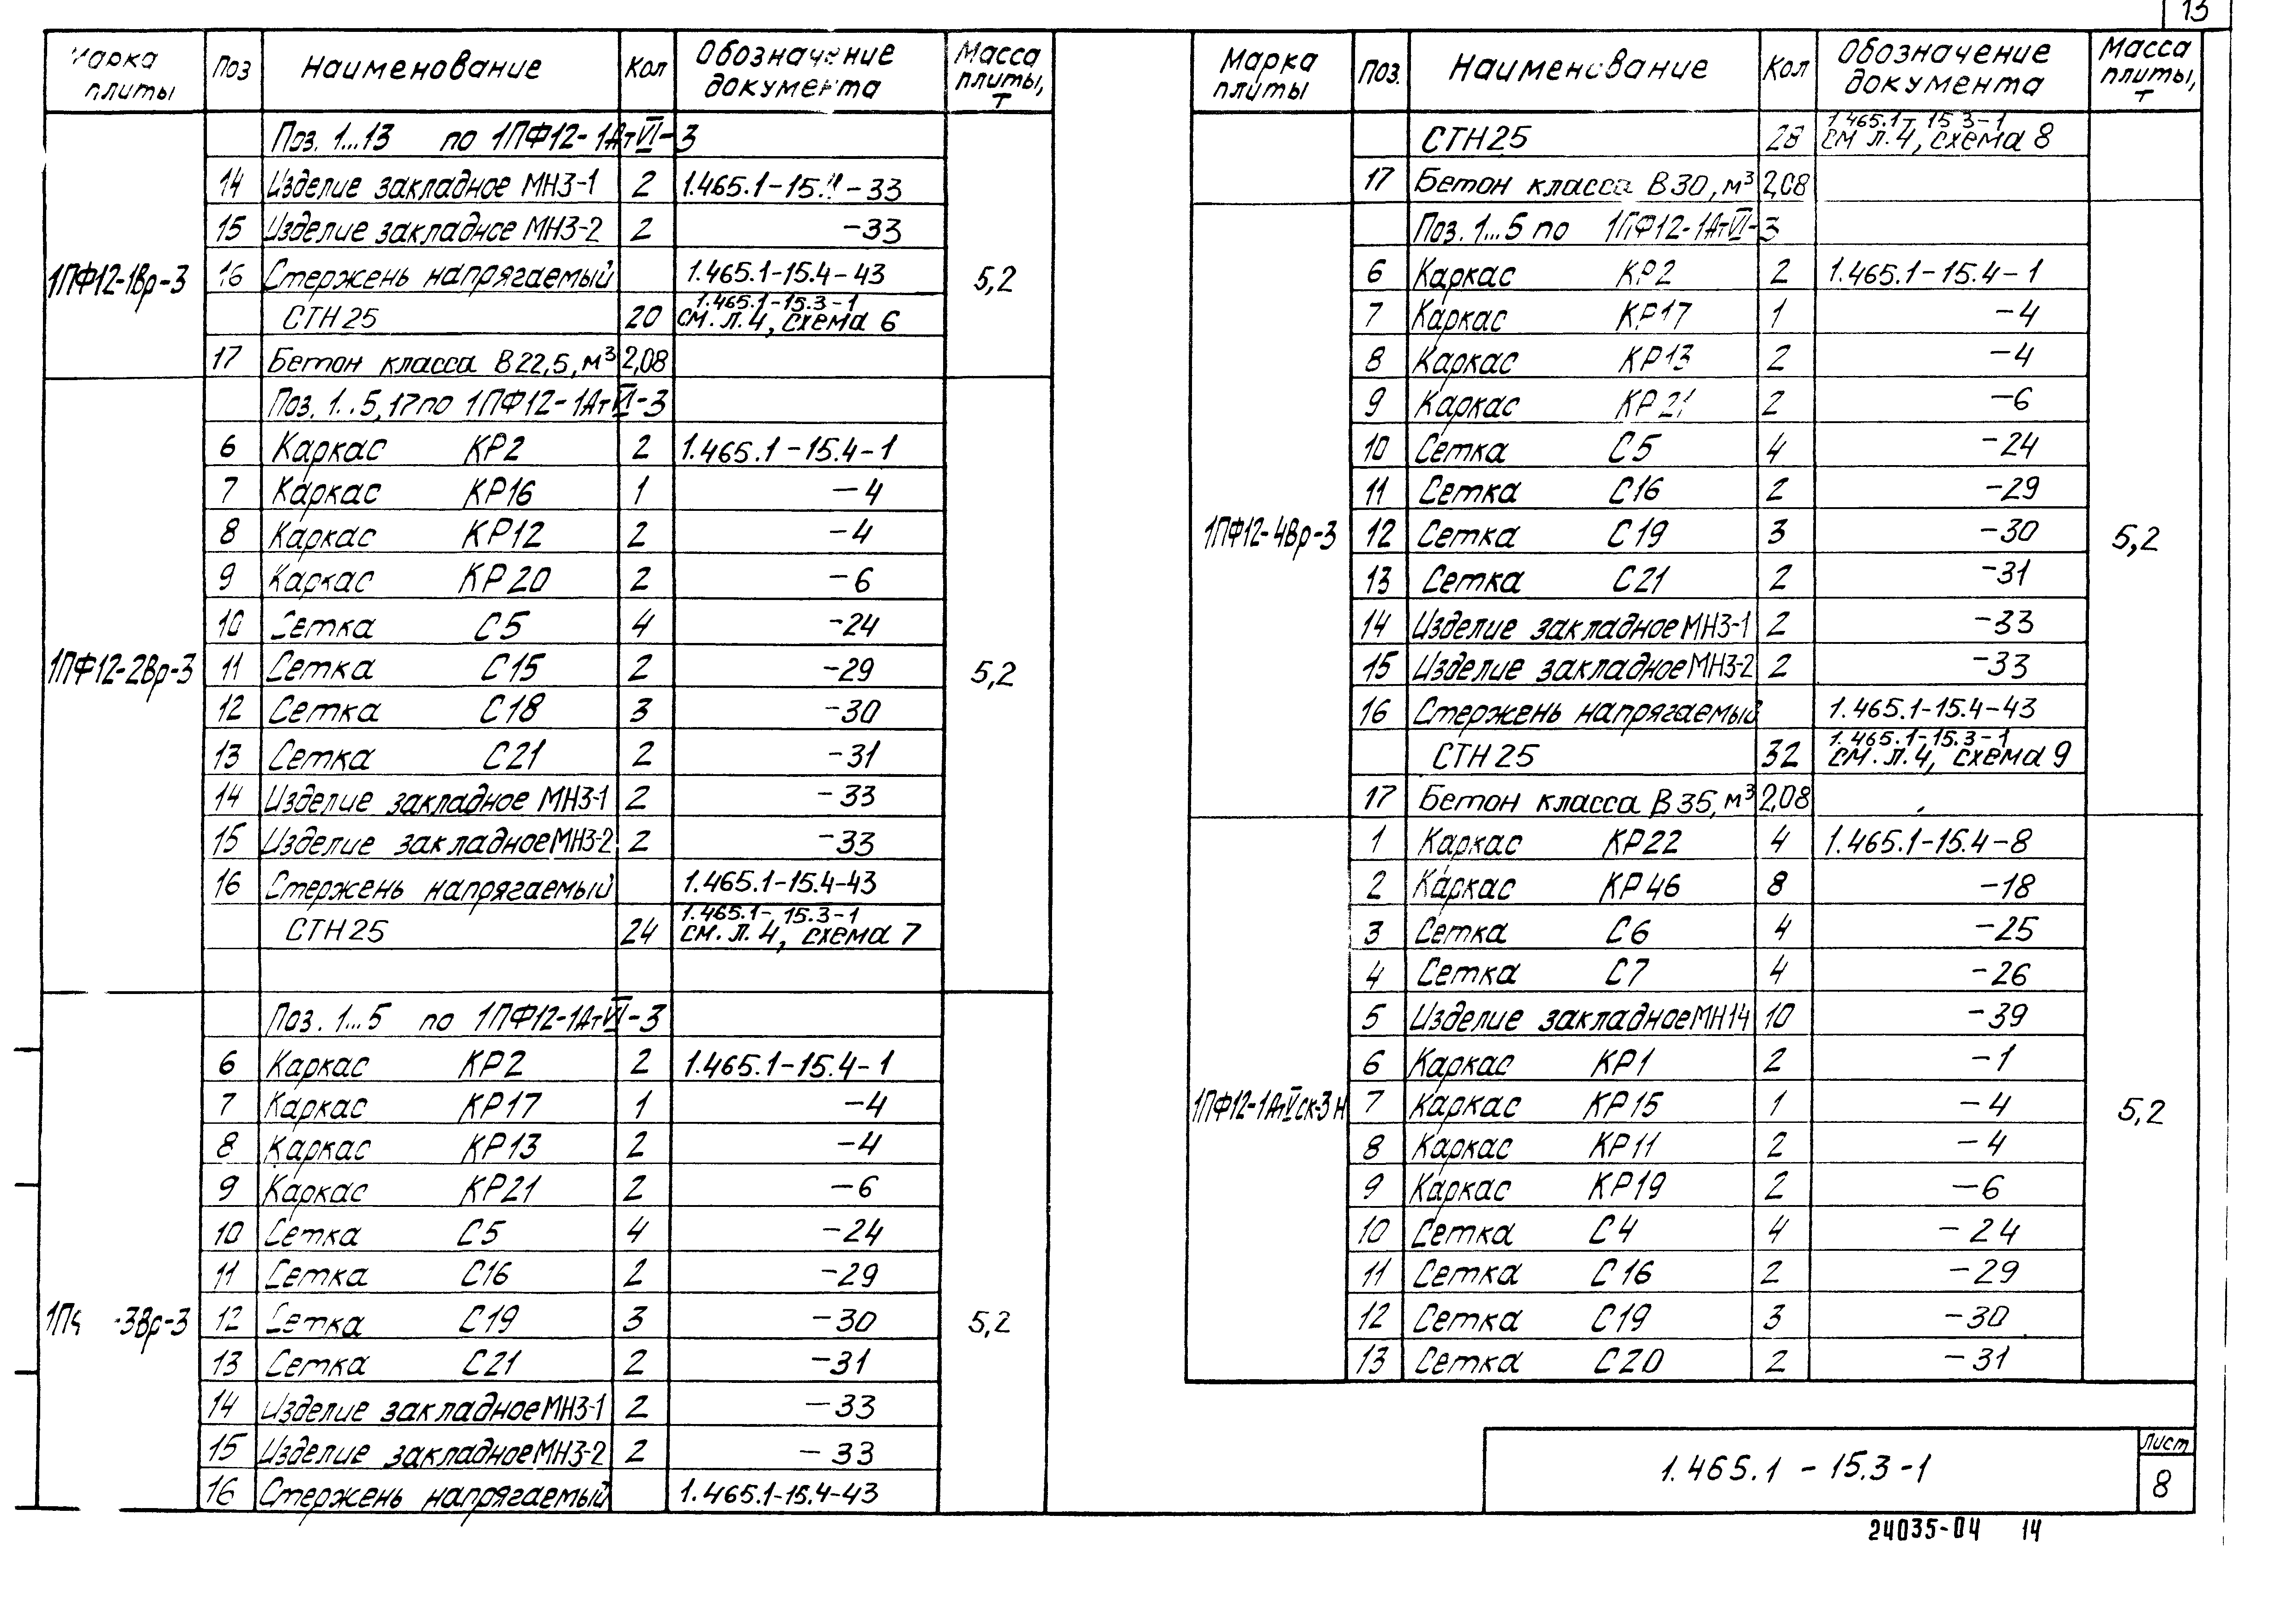 13
Марка плиты Поз Наименование Кол Обозначение документа Масса плиты, т
Поз. 1...13 по 1ПФ12-1АтVI-3
14 Изделие закладное МН3-1 2 1.465.1-15.4-33
15 Изделие закладное МН3-2 2 -33
1ПФ12-1Вр-3 16 Стержень напрягаемый 1.465.1-15.4-43 5,2
СТН25 20 1.465.1-15.3-1 см. л.4, схема 6
17 Бетон класса В22,5, м³ 2,08
Поз. 1..5,17 по 1ПФ12-1АтVI-3
6 Каркас КР2 2 1.465.1-15.4-1
7 Каркас КР16 1 -4
8 Каркас КР12 2 -4
9 Каркас КР20 2 -6
10 Сетка С5 4 -24
1ПФ12-2Вр-3 11 Сетка С15 2 -29 5,2
12 Сетка С18 3 -30
13 Сетка С21 2 -31
14 Изделие закладное МН3-1 2 -33
15 Изделие закладное МН3-2 2 -33
16 Стержень напрягаемый 1.465.1-15.4-43
СТН25 24 1.465.1-15.3-1 см. л.4, схема 7
Поз. 1...5 по 1ПФ12-1АтVI-3
6 Каркас КР2 2 1.465.1-15.4-1
7 Каркас КР17 1 -4
8 Каркас КР13 2 -4
9 Каркас КР21 2 -6
10 Сетка С5 4 -24
11 Сетка С16 2 -29
-3Вр-3 12 Сетка С19 3 -30 5,2
13 Сетка С21 2 -31
14 Изделие закладное МН3-1 2 -33
15 Изделие закладное МН3-2 2 -33
16 Стержень напрягаемый 1.465.1-15.4-43
Марка плиты Поз. Наименование Кол Обозначение документа Масса плиты, т
СТН25 28 1.465.1-15.3-1 см л.4, схема 8
17 Бетон класса В30, м³ 2,08
Поз. 1...5 по 1ПФ12-1АтVI-3
6 Каркас КР2 2 1.465.1-15.4-1
7 Каркас КР17 1 -4
8 Каркас КР13 2 -4
9 Каркас КР21 2 -6
10 Сетка С5 4 -24
11 Сетка С16 2 -29
1ПФ12-4Вр-3 12 Сетка С19 3 -30 5,2
13 Сетка С21 2 -31
14 Изделие закладное МН3-1 2 -33
15 Изделие закладное МН3-2 2 -33
16 Стержень напрягаемый 1.465.1-15.4-43
СТН25 32 1.465.1-15.3-1 см. л.4, схема 9
17 Бетон класса В35, м³ 2,08
1 Каркас КР22 4 1.465.1-15.4-8
2 Каркас КР46 8 -18
3 Сетка С6 4 -25
4 Сетка С7 4 -26
5 Изделие закладное МН14 10 -39
6 Каркас КР1 2 -1
1ПФ12-1АтVск-3Н 7 Каркас КР15 1 -4 5,2
8 Каркас КР11 2 -4
9 Каркас КР19 2 -6
10 Сетка С4 4 -24
11 Сетка С16 2 -29
12 Сетка С19 3 -30
13 Сетка С20 2 -31
1.465.1-15.3-1 Лист 8
24035-04 14